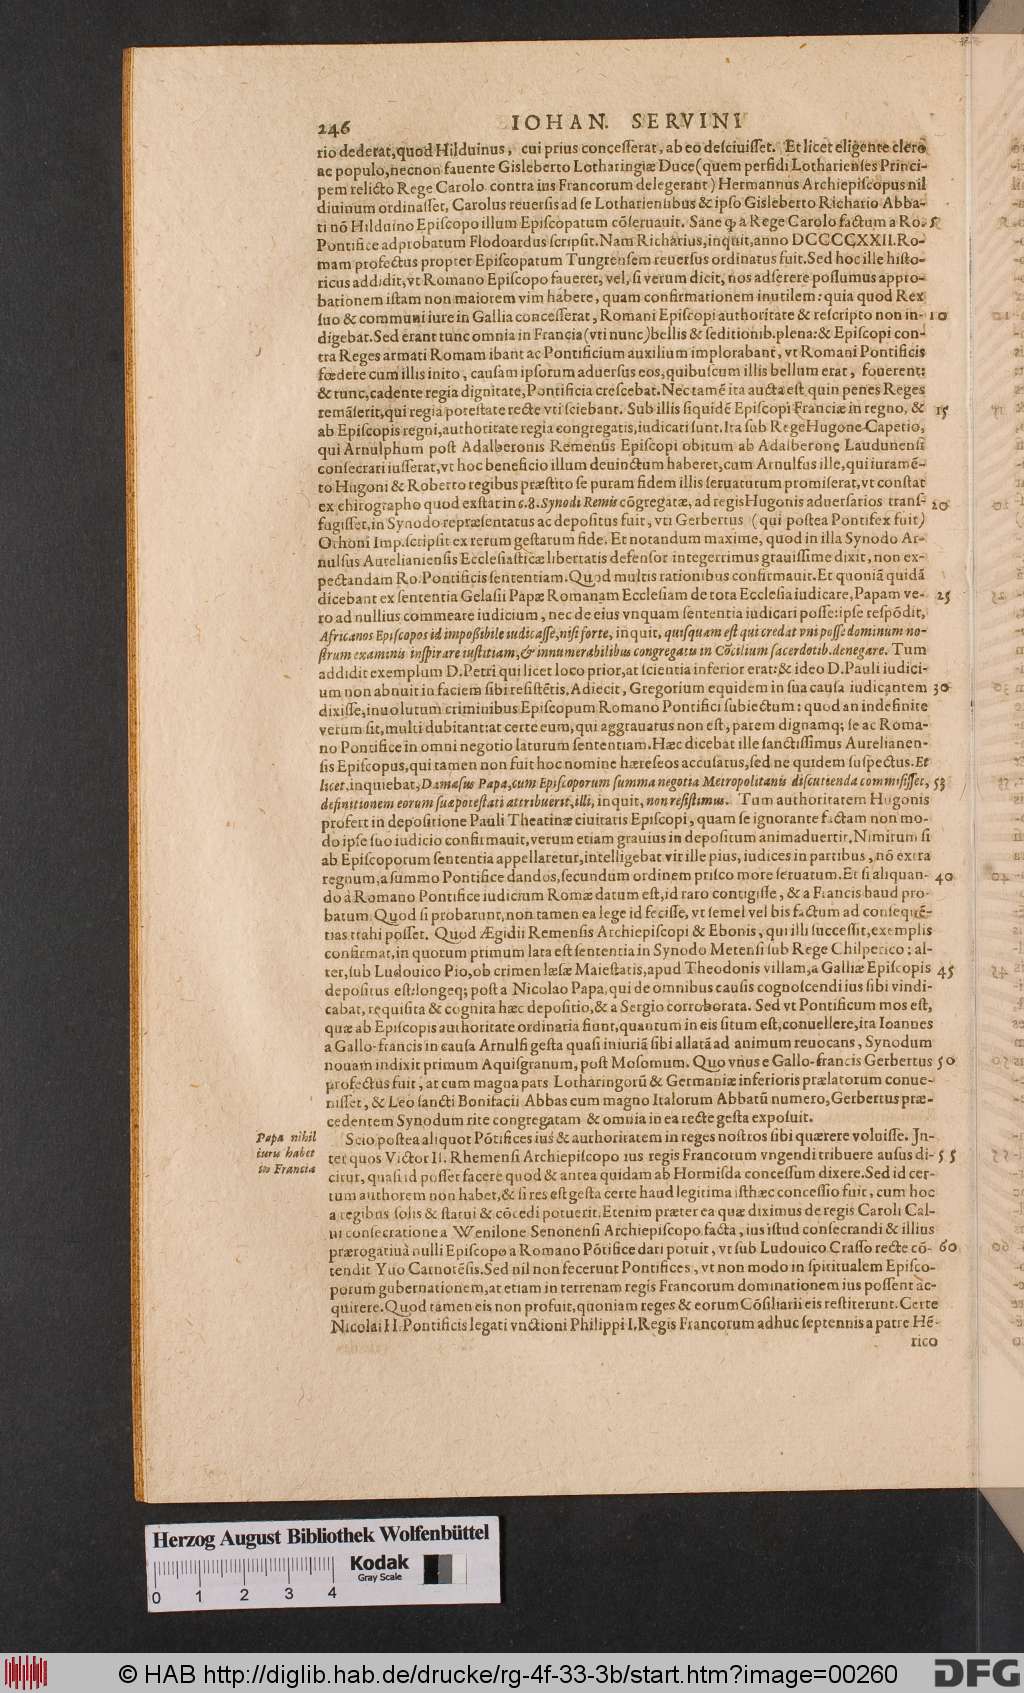 246 IOHAN. SERVINI
rio dederat,quod Hilduinus, cui prius concesserat, ab eo desciuisset. Et licet eligente clero
ac populo,necnon fauente Gisleberto Lotharingiæ Duce(quem perfidi Lotharienses Princi-
pem relicto Rege Carolo contra ius Francorum delegerant) Hermannus Archiepiscopus nil
diuinum ordinasset, Carolus reuersis ad se Lothariensibus & ipso Gisleberto Richario Abba-
ti nō Hilduino Episcopo illum Episcopatum cōseruauit. Sane qꝫ a Rege Carolo factum a Ro. 5
Pontifice adprobatum Flodoardus scripsit. Nam Richarius,inquit,anno DCCCCXXII.Ro-
mam profectus propter Episcopatum Tungrensem reuersus ordinatus fuit.Sed hoc ille histo-
ricus addidit,vt Romano Episcopo faueret, vel, si verum dicit, nos adserere possumus appro-
bationem istam non maiorem vim habere, quam confirmationem inutilem: quia quod Rex
suo & communi iure in Gallia concesserat, Romani Episcopi authoritate & rescripto non in- 10
digebat.Sed erant tunc omnia in Francia(vti nunc)bellis & seditionib.plena:& Episcopi con-
tra Reges armati Romam ibant ac Pontificium auxilium implorabant, vt Romani Pontificis
fœdere cum illis inito, causam ipsorum aduersus eos,quibuscum illis bellum erat, fouerent:
& tunc,cadente regia dignitate,Pontificia crescebat.Nec tamē ita aucta est quin penes Reges
remāserit,qui regia potestate recte vti sciebant. Sub illis siquidē Episcopi Franciæ in regno, & 15
ab Episcopis regni,authoritate regia congregatis,iudicati sunt.Ita sub Rege Hugone Capetio,
qui Arnulphum post Adalberonis Remensis Episcopi obitum ab Adalberone Laudunensi
consecrati iusserat,vt hoc beneficio illum deuinctum haberet,cum Arnulfus ille,qui iuramē-
to Hugoni & Roberto regibus præstito se puram fidem illis seruaturum promiserat,vt constat
ex chirographo quod exstat in c.8.Synodi Remis cōgregatæ, ad regis Hugonis aduersarios trans- 20
fugisset,in Synodo repræsentatus ac depositus fuit, vti Gerbertus (qui postea Pontifex fuit)
Othoni Imp.scripsit ex rerum gestarum fide. Et notandum maxime, quod in illa Synodo Ar-
nulsus Aurelianensis Ecclesiasticæ libertatis defensor integerrimus grauissime dixit, non ex-
pectandam Ro.Pontificis sententiam.Quod multis rationibus confirmauit.Et quoniā quidā
dicebant ex sententia Gelasii Papæ Romanam Ecclesiam de tota Ecclesia iudicare,Papam ve- 25
ro ad nullius commeare iudicium, nec de eius vnquam sententia iudicari posse:ipse respōdit,
Africanos Episcopos id impoßibile iudicasse,nisi forte, inquit, quisquam est qui credat vni posse dominum no-
strum examinis inspirare iustitiam,& innumerabilibus congregatis in Cōcilium sacerdotib.denegare. Tum
addidit exemplum D.Petri qui licet loco prior,at scientia inferior erat:& ideo D.Pauli iudici-
um non abnuit in faciem sibi resistētis.Adiecit, Gregorium equidem in sua causa iudicantem 30
dixisse,inuolutum criminibus Episcopum Romano Pontifici subiectum: quod an indefinite
verum sit,multi dubitant:at certe eum,qui aggrauatus non est, parem dignamqꝫ se ac Roma-
no Pontifice in omni negotio laturum sententiam.Hæc dicebat ille sanctissimus Aurelianen-
sis Episcopus,qui tamen non fuit hoc nomine hæreseos accusatus,sed ne quidem suspectus.Et
licet.inquiebat,Damasus Papa,cum Episcoporum summa negotia Metropolitanis discutienda commisisset, 53
definitionem eorum suæ potestati attribuerit,illi, inquit, non resistimus. Tum authoritatem Hugonis
profert in depositione Pauli Theatinæ ciuitatis Episcopi, quam se ignorante factam non mo-
do ipse suo iudicio confirmauit,verum etiam grauius in depositum animaduertit.Nimirum si
ab Episcoporum sententia appellaretur,intelligebat vir ille pius, iudices in partibus, nō extra
regnum,a summo Pontifice dandos,secundum ordinem prisco more seruatum.Et si aliquan- 40
do a Romano Pontifice iudicium Romæ datum est,id raro contigisse, & a Francis haud pro-
batum. Quod si probarunt,non tamen ea lege id fecisse, vt semel vel bis factum ad consequē-
tias trahi posset. Quod Ægidii Remensis Archiepiscopi & Ebonis, qui illi successit,exemplis
confirmat,in quorum primum lata est sententia in Synodo Metensi sub Rege Chilperico: al-
ter,sub Ludouico Pio,ob crimen læsæ Maiestatis,apud Theodonis villam,a Galliæ Episcopis 45
depositus est:longeqꝫ post a Nicolao Papa,qui de omnibus causis cognoscendi ius sibi vindi-
cabat, requisita & cognita hæc depositio,& a Sergio corroborata. Sed vt Pontificum mos est,
quæ ab Episcopis authoritate ordinaria fiunt,quantum in eis situm est,conuellere,ita Ioannes
a Gallo-francis in causa Arnulfi gesta quasi iniuriā sibi allatā ad animum reuocans, Synodum
nouam indixit primum Aquisgranum, post Mosomum. Quo vnus e Gallo-francis Gerbertus 50
profectus fuit, at cum magna pars Lotharingorū & Germaniæ inferioris prælatorum conue-
nisset, & Leo sancti Bonifacii Abbas cum magno Italorum Abbatū numero,Gerbertus præ-
cedentem Synodum rite congregatam & omnia in ea recte gesta exposuit.
Papa nihil
iuris habet
in Francia
Scio postea aliquot Pōtifices ius & authoritatem in reges nostros sibi quærere voluisse. In-
ter quos Victor II. Rhemensi Archiepiscopo ius regis Francorum vngendi tribuere ausus di- 55
citur, quasi id posset facere quod & antea quidam ab Hormisda concessum dixere.Sed id cer-
tum authorem non habet,& si res est gesta certe haud legitima isthæc concessio fuit, cum hoc
a regibus solis & statui & cōcedi potuerit.Etenim præter ea quæ diximus de regis Caroli Cal-
ui consecratione a Wenilone Senonensi Archiepiscopo facta, ius istud consecrandi & illius
prærogatiua nulli Episcopo a Romano Pōtifice dari potuit, vt sub Ludouico Crasso recte cō- 60
tendit Yuo Carnotēsis.Sed nil non fecerunt Pontifices, vt non modo in spiritualem Episco-
porum gubernationem,at etiam in terrenam regis Francorum dominationem ius possent ac-
quirere.Quod tamen eis non profuit,quoniam reges & eorum Cōsiliarii eis restiterunt.Certe
Nicolai II.Pontificis legati vnctioni Philippi I.Regis Francorum adhuc septennis a patre Hē-
rico
Herzog August Bibliothek Wolfenbüttel
Kodak
Gray Scale
0 1 2 3 4
© HAB http://diglib.hab.de/drucke/rg-4f-33-3b/start.htm?image=00260
DFG